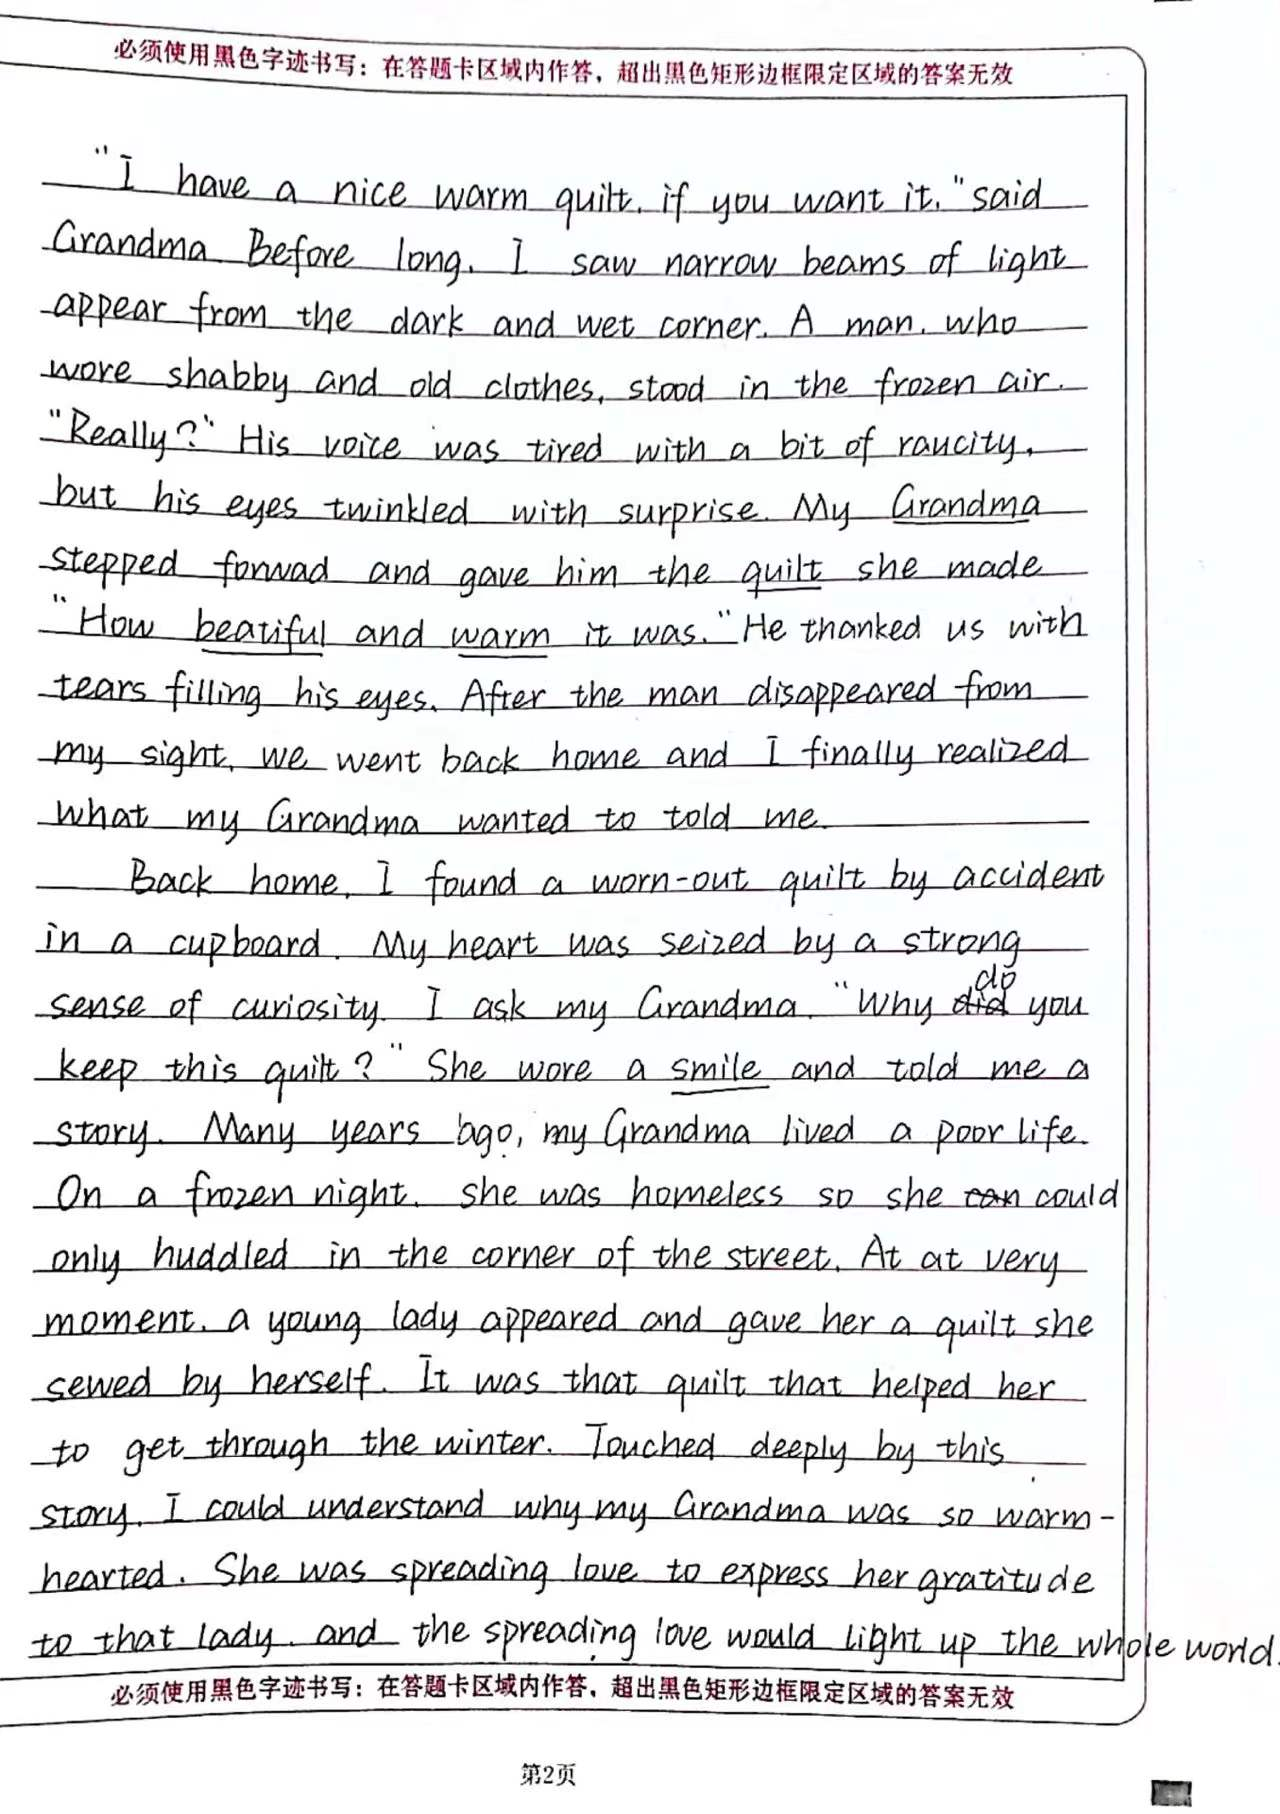 必须使用黑色字迹书写：在答题卡区域内作答，超出黑色矩形边框限定区域的答案无效
"I have a nice warm quilt, if you want it." said
Grandma Before long, I saw narrow beams of light
appear from the dark and wet corner. A man, who
wore shabby and old clothes, stood in the frozen air.
"Really?" His voice was tired with a bit of raucity,
but his eyes twinkled with surprise. My Grandma
stepped forwad and gave him the quilt she made
"How beatiful and warm it was." He thanked us with
tears filling his eyes. After the man disappeared from
my sight, we went back home and I finally realized
what my Grandma wanted to told me.
Back home, I found a worn-out quilt by accident
in a cupboard. My heart was seized by a strong
do
sense of curiosity. I ask my Grandma. "Why did you
keep this quilt?" She wore a smile and told me a
story. Many years ago, my Grandma lived a poor life.
On a frozen night, she was homeless so she can could
only huddled in the corner of the street. At at very
moment, a young lady appeared and gave her a quilt she
sewed by herself. It was that quilt that helped her
to get through the winter. Touched deeply by this
story, I could understand why my Grandma was so warm-
hearted. She was spreading love to express her gratitude
to that lady, and the spreading love would light up the whole world.
必须使用黑色字迹书写：在答题卡区域内作答，超出黑色矩形边框限定区域的答案无效
第2页